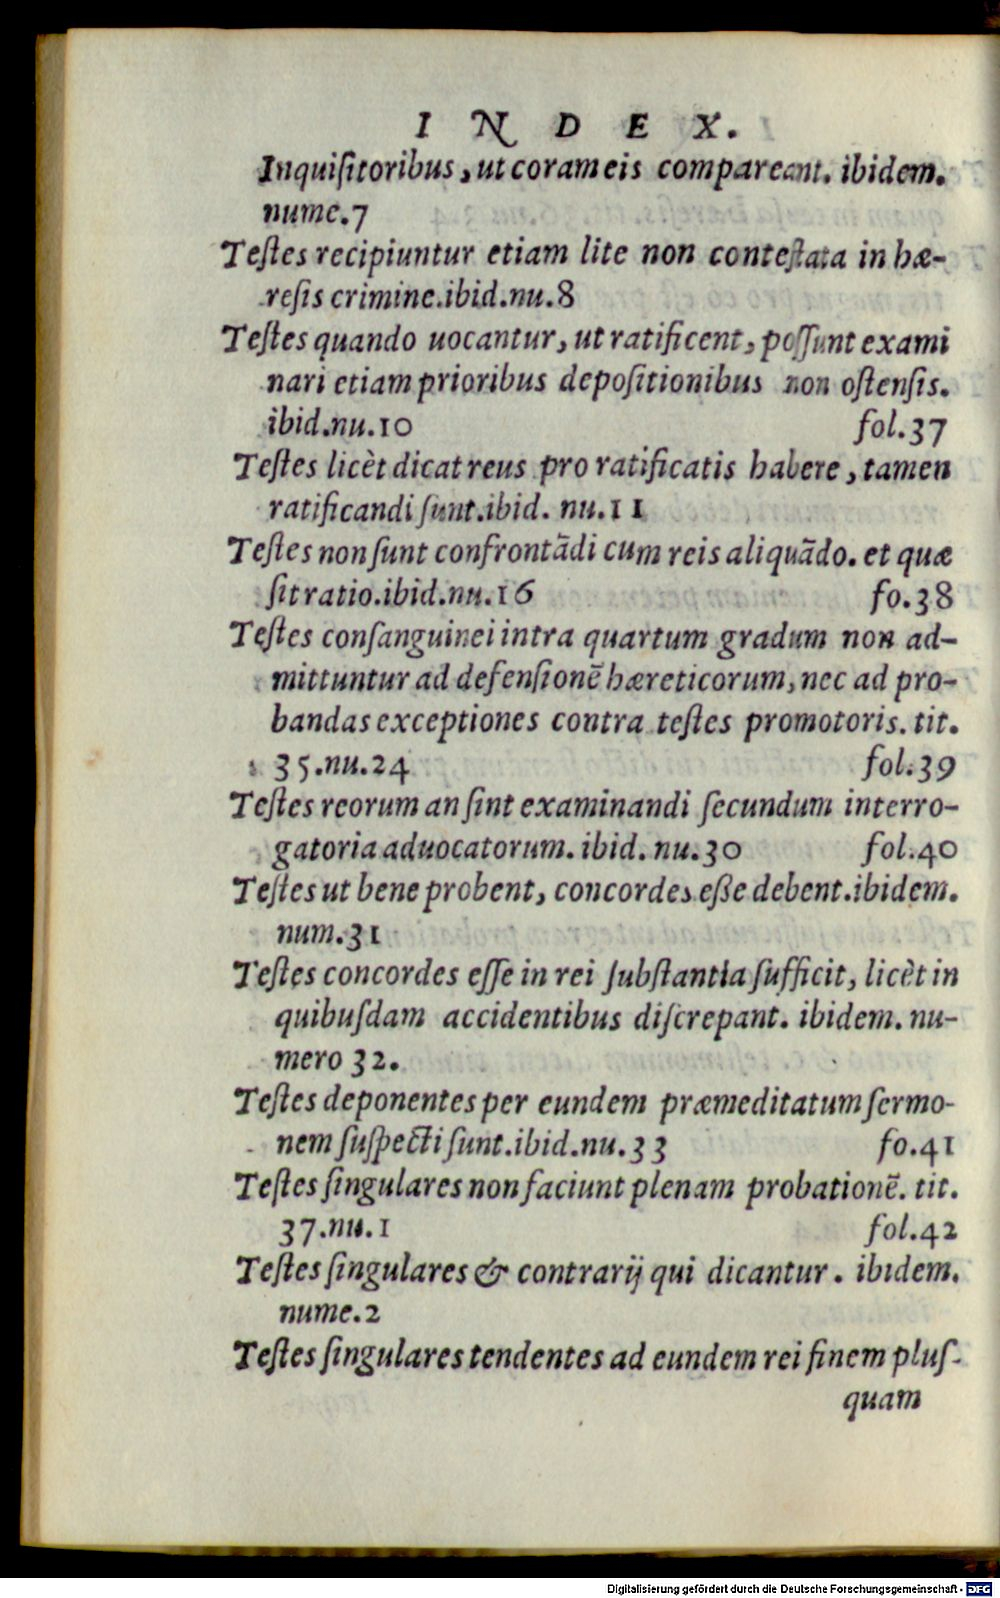 INDEX.
Inquiſitoribus, ut coram eis compareant. ibidem.
nume.7
Teſtes recipiuntur etiam lite non conteſtata in hæ-
reſis crimine.ibid.nu.8
Teſtes quando uocantur, ut ratificent, poſſunt exami
nari etiam prioribus depoſitionibus non oſtenſis.
ibid.nu.10 fol.37
Teſtes licèt dicat reus pro ratificatis habere, tamen
ratificandi ſunt.ibid. nu.11
Teſtes non ſunt confrontādi cum reis aliquādo. et quæ
ſit ratio.ibid.nu.16 fo.38
Teſtes conſanguinei intra quartum gradum non ad-
mittuntur ad defenſionē hæreticorum, nec ad pro-
bandas exceptiones contra teſtes promotoris. tit.
35.nu.24 fol.39
Teſtes reorum an ſint examinandi ſecundum interro-
gatoria aduocatorum. ibid. nu.30 fol.40
Teſtes ut bene probent, concordes eße debent.ibidem.
num.31
Teſtes concordes eſſe in rei ſubſtantia ſufficit, licèt in
quibuſdam accidentibus diſcrepant. ibidem. nu-
mero 32.
Teſtes deponentes per eundem præmeditatum ſermo-
nem ſuſpecti ſunt.ibid.nu.33 fo.41
Teſtes ſingulares non faciunt plenam probationē. tit.
37.nu.1 fol.42
Teſtes ſingulares & contrarij qui dicantur. ibidem.
nume.2
Teſtes ſingulares tendentes ad eundem rei finem pluſ-
quam
Digitalisierung gefördert durch die Deutsche Forschungsgemeinschaft - DFG